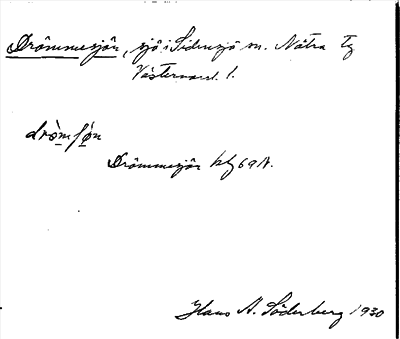 Drömmesjön, sjö i Sidensjö sn. Nätra tg
Västernorrl. l.
drömʃön
Drömmesjön bl 69 N.
Hans A. Söderberg 1930